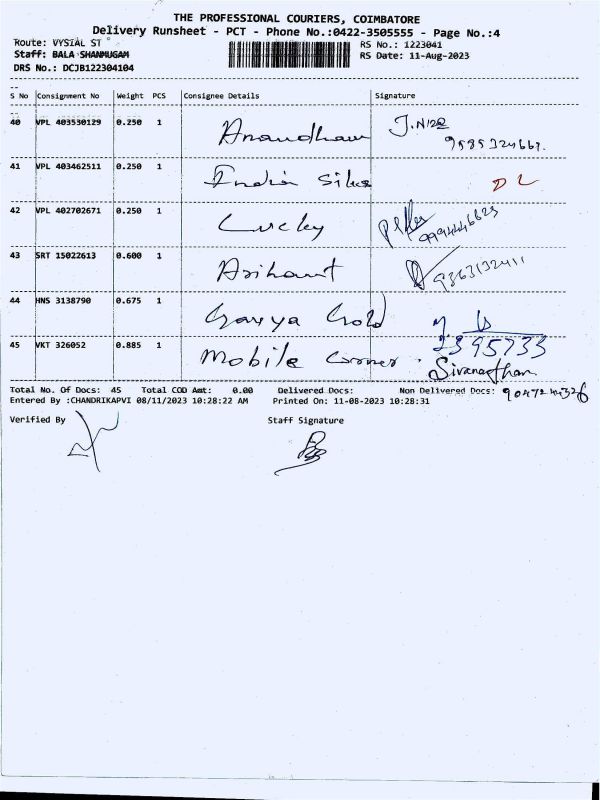 THE PROFESSIONAL COURIERS, COIMBATORE
Delivery Runsheet - PCT - Phone No.:0422-3505555 - Page No.:4
Route: VYSIAL ST RS No.: 1223041
Staff: BALA SHANMUGAM RS Date: 11-Aug-2023
DRS No.: DCJB122304104
S No Consignment No Weight PCS Consignee Details Signature
40 VPL 403530129 0.250 1 Anandham
41 VPL 403462511 0.250 1 India Silks DL
42 VPL 402702671 0.250 1 Lucky
43 SRT 15022613 0.600 1 Arihant 9363132411
44 HNS 3138790 0.675 1 Gold
2395733
45 VKT 326052 0.885 1 Mobile Corner
Total No. Of Docs: 45 Total COD Amt: 0.00 Delivered Docs: Non Delivered Docs:
Entered By :CHANDRIKAPVI 08/11/2023 10:28:22 AM Printed On: 11-08-2023 10:28:31
Verified By Staff Signature